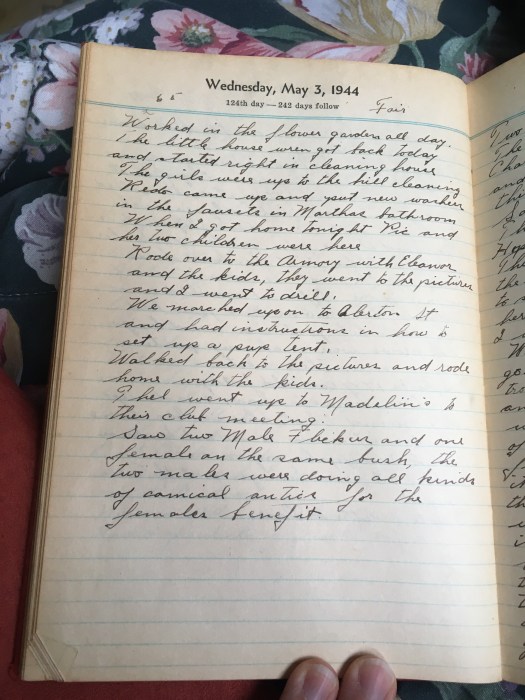 Wednesday, May 3, 1944
124th day — 242 days follow
65 Fair
Worked in the flower gardens all day.
The little house wren got back today
and started right in cleaning house
The girls were up to the hill cleaning
Redo came up and put new washers
in the fausets in Marthas bathroom
When I got home tonight Pic and
her two children were here
Rode over to the Armory with Eleanor
and the kids, they went to the pictures
and I went to drill.
We marched up on to St
and had instructions in how to
set up a pup tent.
Walked back to the pictures and rode
home with the kids.
Ethel went up to Madelin's to
their club meeting.
Saw two Male Flickers and one
female on the same bush, the
two males were doing all kinds
of comical antics for the
females benefit.